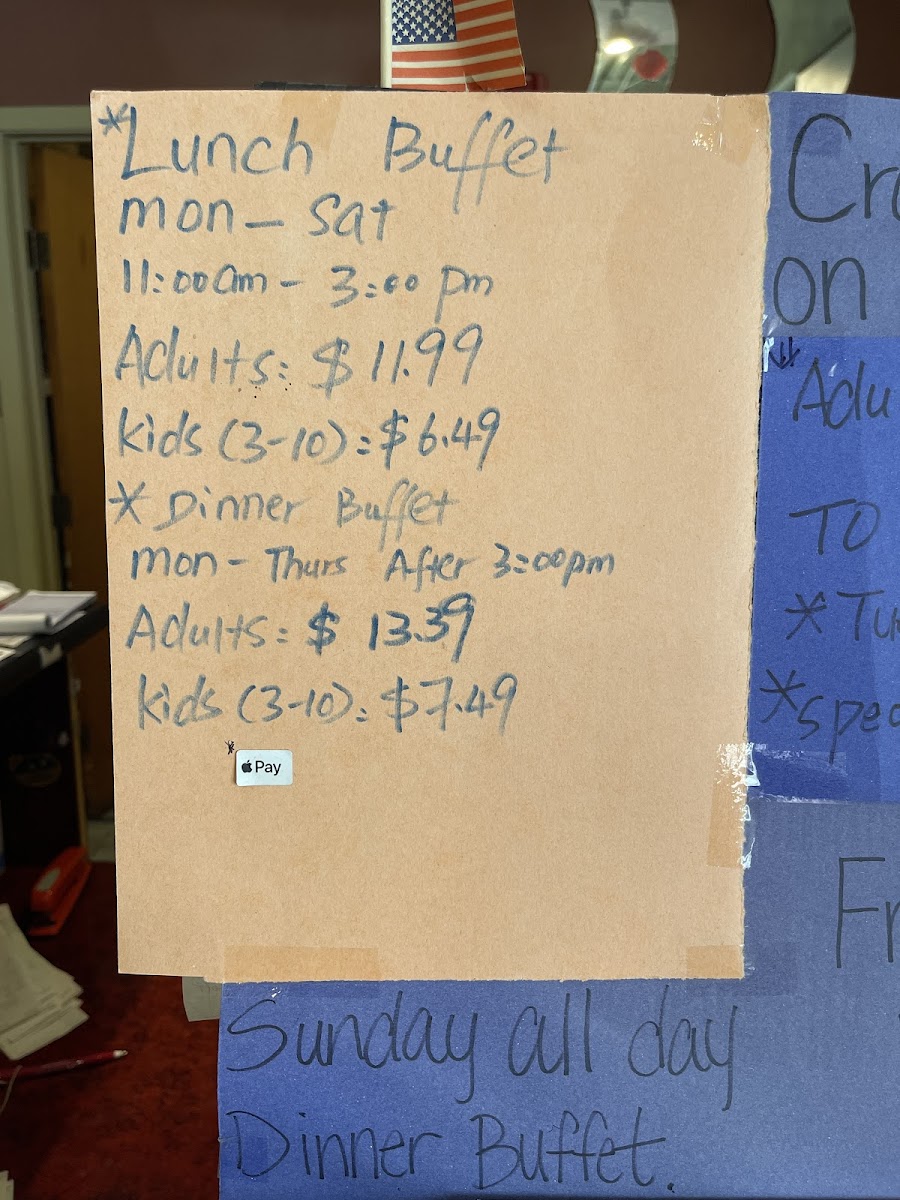 *Lunch Buffet
mon - Sat
11:00am - 3:00 pm
Adults: $ 11.99
kids (3-10): $6.49
* Dinner Buffet
mon - Thurs After 3:00pm
Adults: $ 13.39
kids (3-10): $7.49
*
Pay
on
TO
Sunday all day
Dinner Buffet.